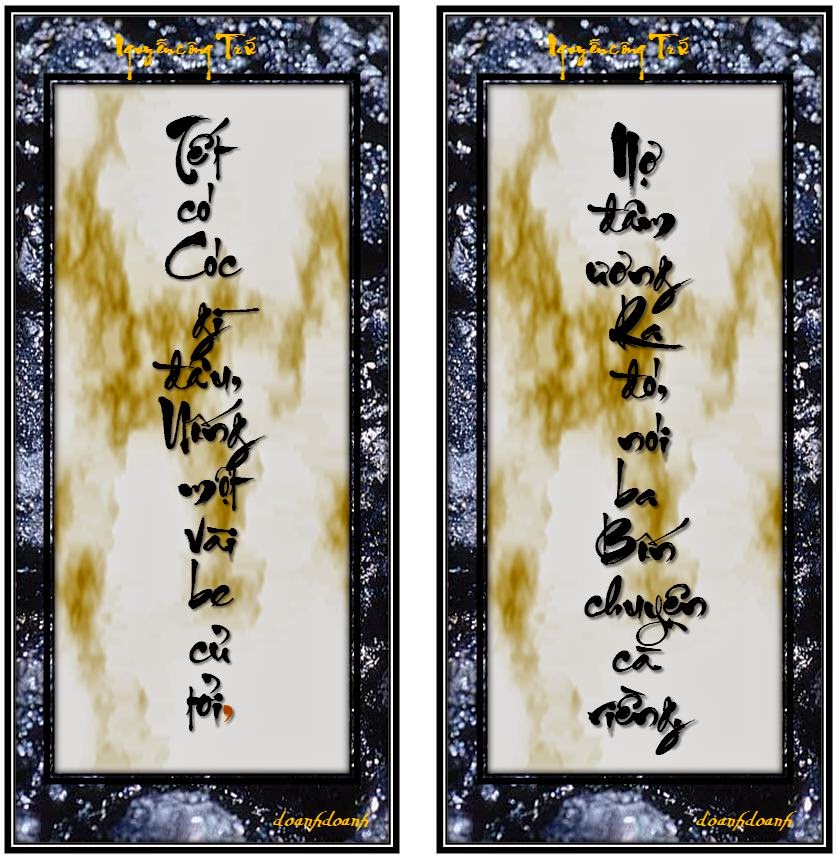 Nguyễn công Trứ
Tết
có
Cóc
gì
đâu,
Uống
một
vài
be
củ
tỏi,
doanhdoanh
Nguyễn công Trứ
Nợ
đâm
ương
Ra
đó,
nói
ba
Bốn
chuyện
cà
riềng.
doanhdoanh